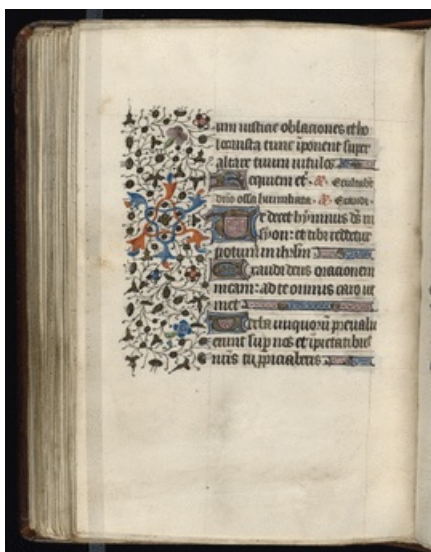 um iusticie oblationes et ho
locausta tunc iponent super
altare tuum vitulos
Requiem et̄. a. Exultabūt
dn̄o ossa humiliata. a. Exaudi.
Te decet hymnus ds̄ in
syon: et tibi reddetur
votum in ihrlm̄
Exaudi deus orationem
meam: ad te omnis caro ve
niet
Verba iniquorū prevalu
erunt sup nos et ipietatibus
nr̄is tu ppiciaberis